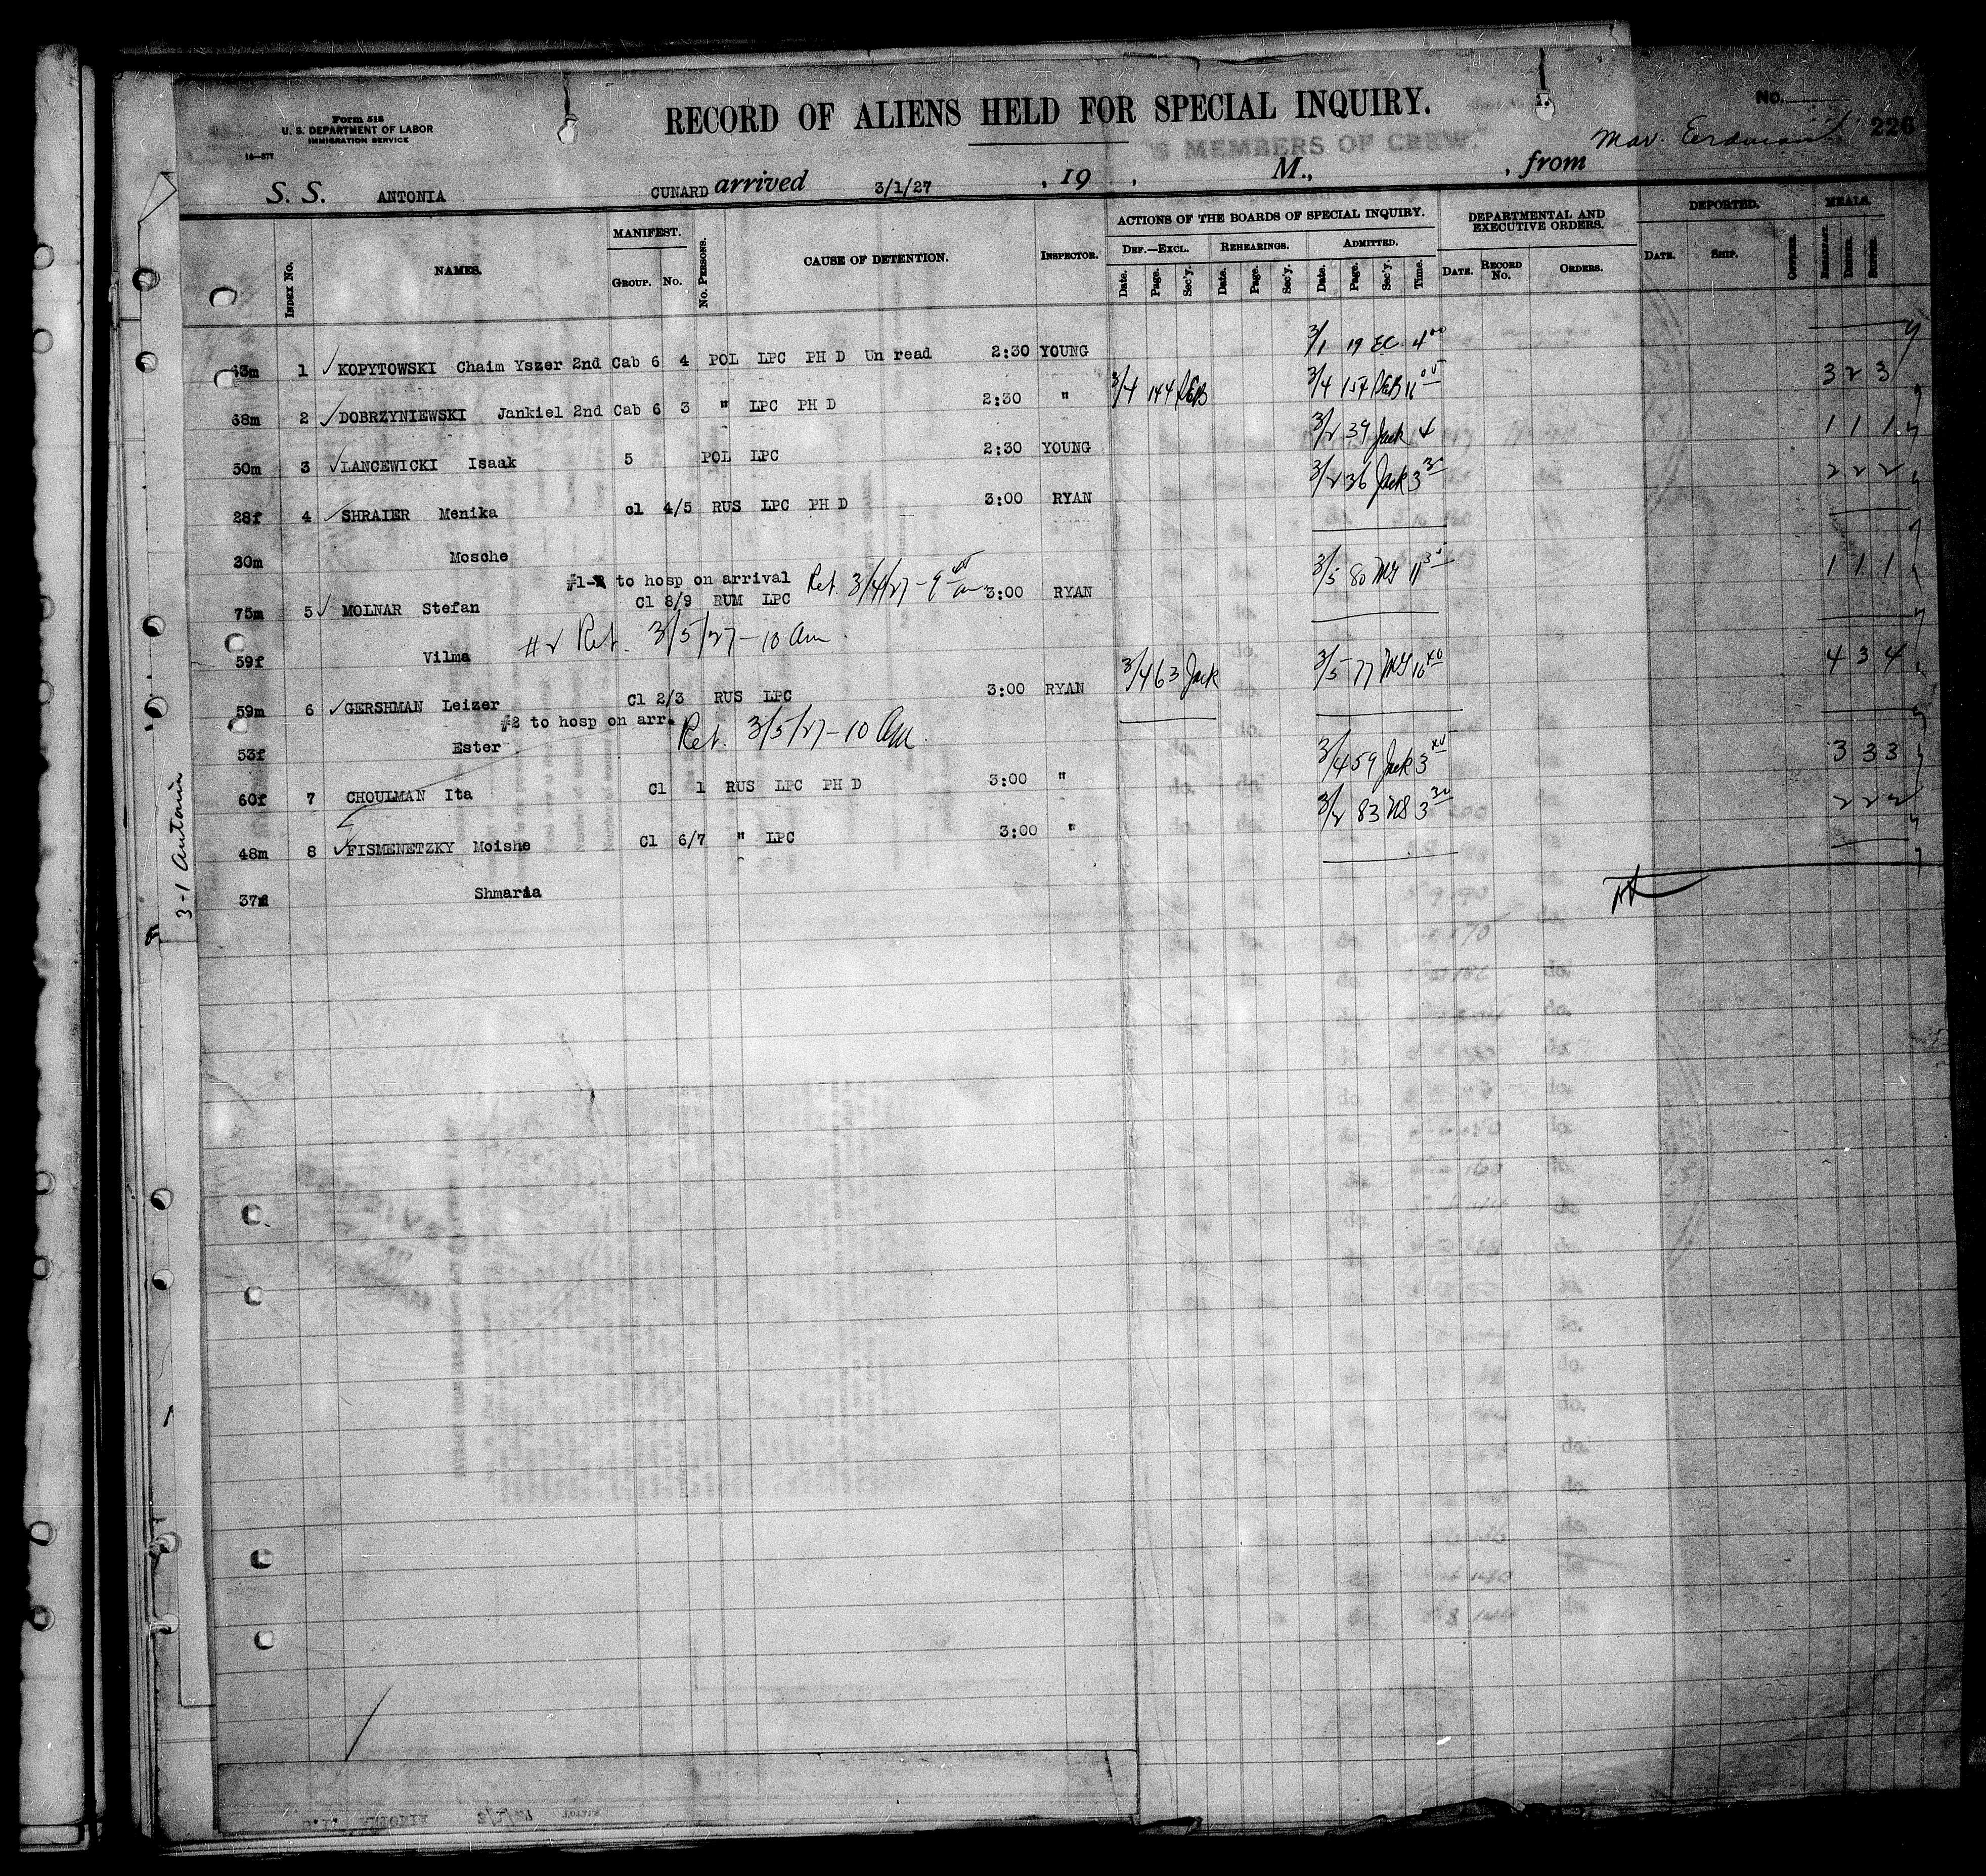 Form 518
U. S. DEPARTMENT OF LABOR
IMMIGRATION SERVICE
16—577
RECORD OF ALIENS HELD FOR SPECIAL INQUIRY.
No.
226
S MEMBERS OF CREW.
S. S. ANTONIA CUNARD arrived 3/1/27 , 19 , M., , from
INDEX NO. NAMES. MANIFEST. GROUP. NO. NO. PERSONS. CAUSE OF DETENTION. INSPECTOR. ACTIONS OF THE BOARDS OF SPECIAL INQUIRY. DEF.—EXCL. Date. Page. Sec'y. REHEARINGS. Date. Page. Sec'y. ADMITTED. Date. Page. Sec'y. Time. DEPARTMENTAL AND EXECUTIVE ORDERS. DATE. RECORD NO. ORDERS. DEPORTED. DATE. SHIP. OFFICER. MEALS. BREAKFAST. DINNER. SUPPER.
43m 1 ✓ KOPYTOWSKI Chaim Yszer 2nd Cab 6 4 POL LPC PH D Un read 2:30 YOUNG 3/1 19 EC 4 00
68m 2 ✓ DOBRZYNIEWSKI Jankiel 2nd Cab 6 3 " LPC PH D 2:30 " 3/4 144 3/4 157 11 3 2 3
30m 3 ✓ LANCEWICKI Isaak 5 POL LPC 2:30 YOUNG 3/2 39 Jack 4 1 1 1
28f 4 ✓ SHRAIER Menika cl 4/5 RUS LPC PH D 3:00 RYAN 3/2 36 Jack 3 30 2 2 2
30m Mosche
#1- to hosp on arrival Ret. 3/4/27 - 9 am
75m 5 ✓ MOLNAR Stefan Cl 8/9 RUM LPC 3:00 RYAN 3/5 80 11 30 1 1 1
#2 Ret. 3/5/27 - 10 Am
59f Vilma
59m 6 ✓ GERSHMAN Leizer Cl 2/3 RUS LPC 3:00 RYAN 3/4 63 Jack 3/5 77 10 4 3 4
#2 to hosp on arr. Ret. 3/5/27 - 10 Am
53f Ester
60f 7 CHOULMAN Ita Cl 1 RUS LPC PH D 3:00 " 3/4 59 Jack 3 3 3 3
48m 8 ✓ FISMENETZKY Moishe Cl 6/7 " LPC 3:00 " 3/2 83 3 30 2 2 2
37 Shmaria
3-1 Antonia